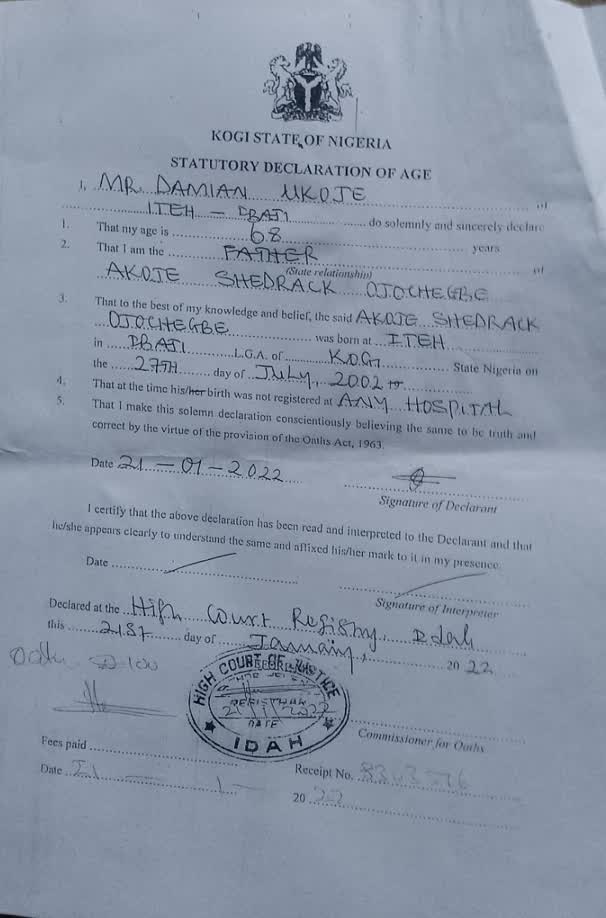 KOGI STATE OF NIGERIA
STATUTORY DECLARATION OF AGE
I, MR. DAMIAN UKOJE of
ITEH - DBAJI do solemnly and sincerely declare
1. That my age is 68 years
2. That I am the FATHER of
(State relationship)
AKOJE SHEDRACK OJOCHEGBE
3. That to the best of my knowledge and belief, the said AKOJE SHEDRACK
OJOCHEGBE was born at ITEH
in DBAJI L.G.A. of KOGI State Nigeria on
the 27TH day of JULY, 2002
4. That at the time his/her birth was not registered at ANY HOSPITAL
5. That I make this solemn declaration conscientiously believing the same to be truth and
correct by the virtue of the provision of the Oaths Act, 1963.
Date 21-01-2022
Signature of Declarant
I certify that the above declaration has been read and interpreted to the Declarant and that
he/she appears clearly to understand the same and affixed his/her mark to it in my presence.
Date
Signature of Interpreter
Declared at the High Court Registry, Idah
this 21st day of January, 2022
Oath
HIGH COURT OF JUSTICE
REGISTRAR
DATE
IDAH
Commissioner for Oaths
Fees paid
Date 21 - 1 - 2022
Receipt No.